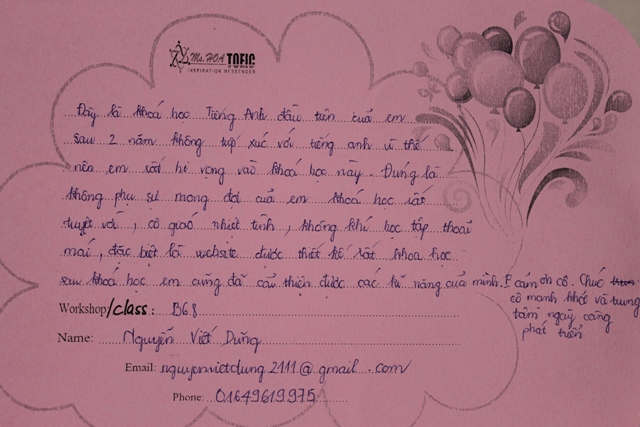 Ms. HOA TOEIC
INSPIRATION MESSENGER
Đây là khoá học Tiếng Anh đầu tiên của em
sau 2 năm không tiếp xúc với tiếng anh vì thế
nên em rất hi vọng vào khoá học này. Đúng là
không phụ sự mong đợi của em khoá học rất
tuyệt vời, cô giáo nhiệt tình, không khí học tập thoải
mái, đặc biệt là website được thiết kế rất khoa học
sau khoá học em cũng đã cải thiện được các kĩ năng của mình. E cám ơn cô. Chúc
cô mạnh khoẻ và trung
tâm ngày càng
phát triển
Workshop/class: B68
Name: Nguyễn Viết Dũng
Email: nguyenvietdung2111@gmail.com
Phone: 01649619975